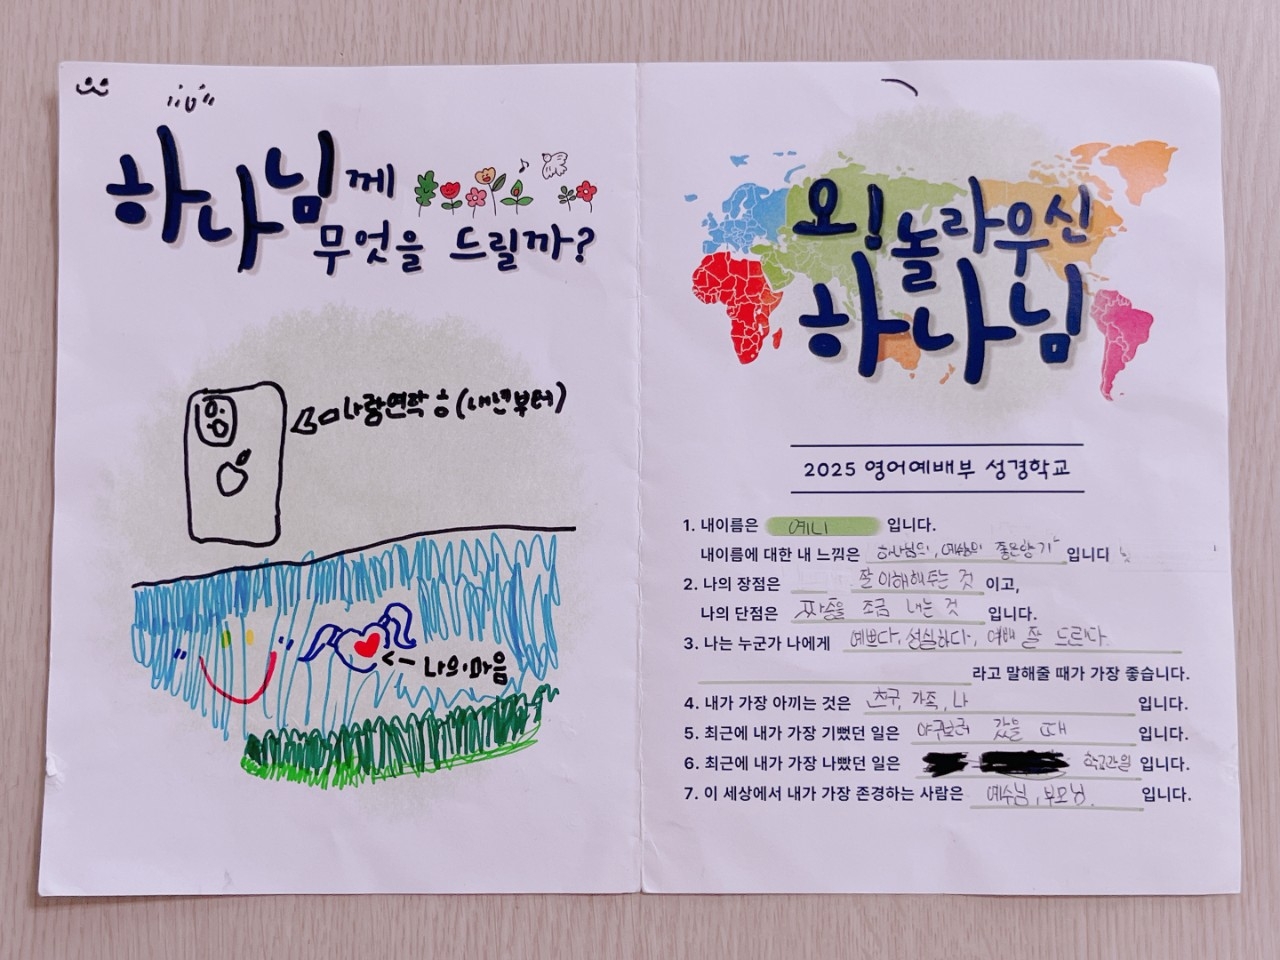 하나님께
무엇을 드릴까?
사랑연락 용 (내년부터)
나의 마음
오! 놀라우신
하나님
2025 영어예배부 성경학교
1. 내이름은 예니 입니다.
내이름에 대한 내 느낌은 하나님의, 예수님의 좋은향기 입니다
2. 나의 장점은 잘 이해해주는 것 이고,
나의 단점은 짜증을 조금 내는 것 입니다.
3. 나는 누군가 나에게 예쁘다, 성실하다, 예배 잘 드린다.
라고 말해줄 때가 가장 좋습니다.
4. 내가 가장 아끼는 것은 친구, 가족, 나 입니다.
5. 최근에 내가 가장 기뻤던 일은 야구보러 갔을 때 입니다.
6. 최근에 내가 가장 나빴던 일은 입니다.
7. 이 세상에서 내가 가장 존경하는 사람은 예수님, 부모님. 입니다.